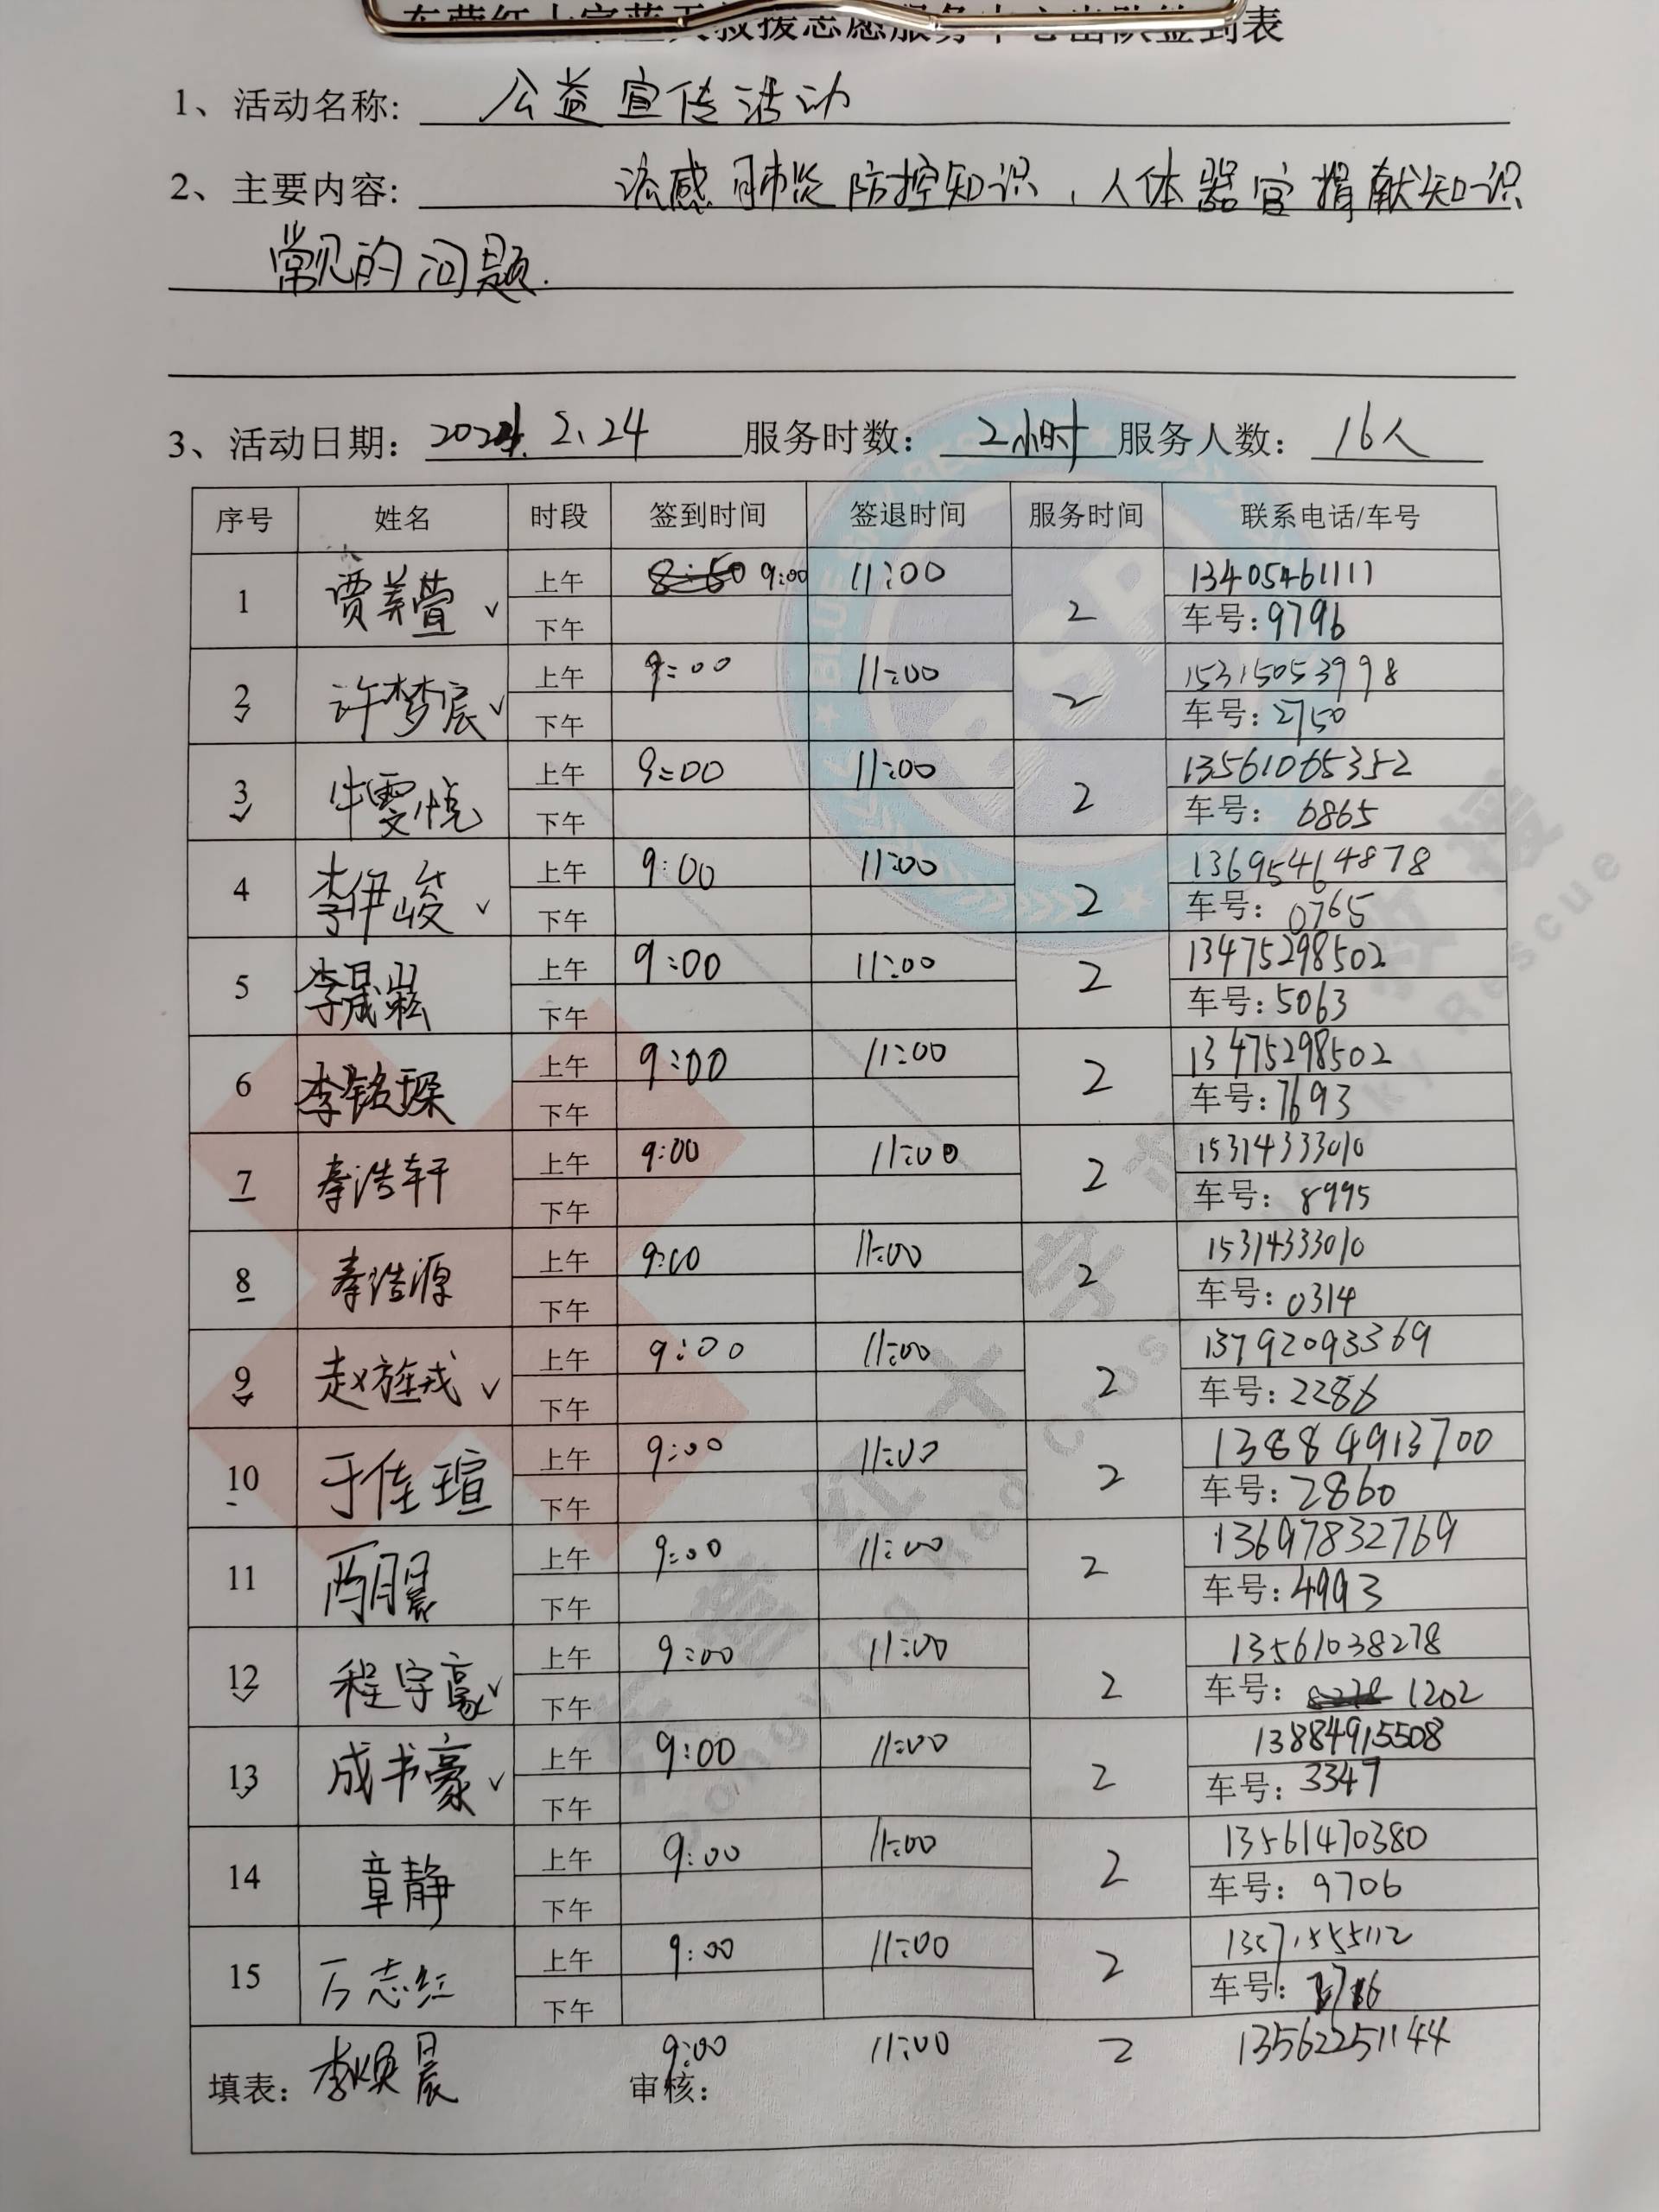 东营红十字蓝天救援志愿服务中心出队签到表
1、活动名称: 公益宣传活动
2、主要内容: 流感肺炎防控知识,人体器官捐献知识
常见的问题.
3、活动日期: 2024.2.24 服务时数: 2小时 服务人数: 16人
序号 姓名 时段 签到时间 签退时间 服务时间 联系电话/车号
1 贾美萱 上午 9:00 11:00 2 13405461111
下午 车号:9796
2 许梦宸 上午 9:00 11:00 2 15315053998
下午 车号:2750
3 牛雯悦 上午 9:00 11:00 2 13561065352
下午 车号: 6865
4 李伊峻 上午 9:00 11:00 2 13695464878
下午 车号: 0765
5 李晟崧 上午 9:00 11:00 2 13475298502
下午 车号:5063
6 李铭琛 上午 9:00 11:00 2 13475298502
下午 车号:7693
7 秦浩轩 上午 9:00 11:00 2 15314333010
下午 车号: 8995
8 秦浩源 上午 9:00 11:00 2 15314333010
下午 车号:0314
9 赵旌戎 上午 9:00 11:00 2 13792093369
下午 车号:2286
10 于佳瑄 上午 9:00 11:00 2 13884913700
下午 车号:2860
11 上午 9:00 11:00 2 13697832769
下午 车号:4993
12 程宇豪 上午 9:00 11:00 2 13561038278
下午 车号: 1202
13 成书豪 上午 9:00 11:00 2 13884915508
下午 车号:3347
14 章静 上午 9:00 11:00 2 13561470380
下午 车号: 9706
15 万志红 上午 9:00 11:00 2
下午 车号:
填表: 李焕晨 审核: 9:00 11:00 2 13562251144
东营红十字蓝天救援
Dongying Red Cross Blue Sky Rescue
BSR